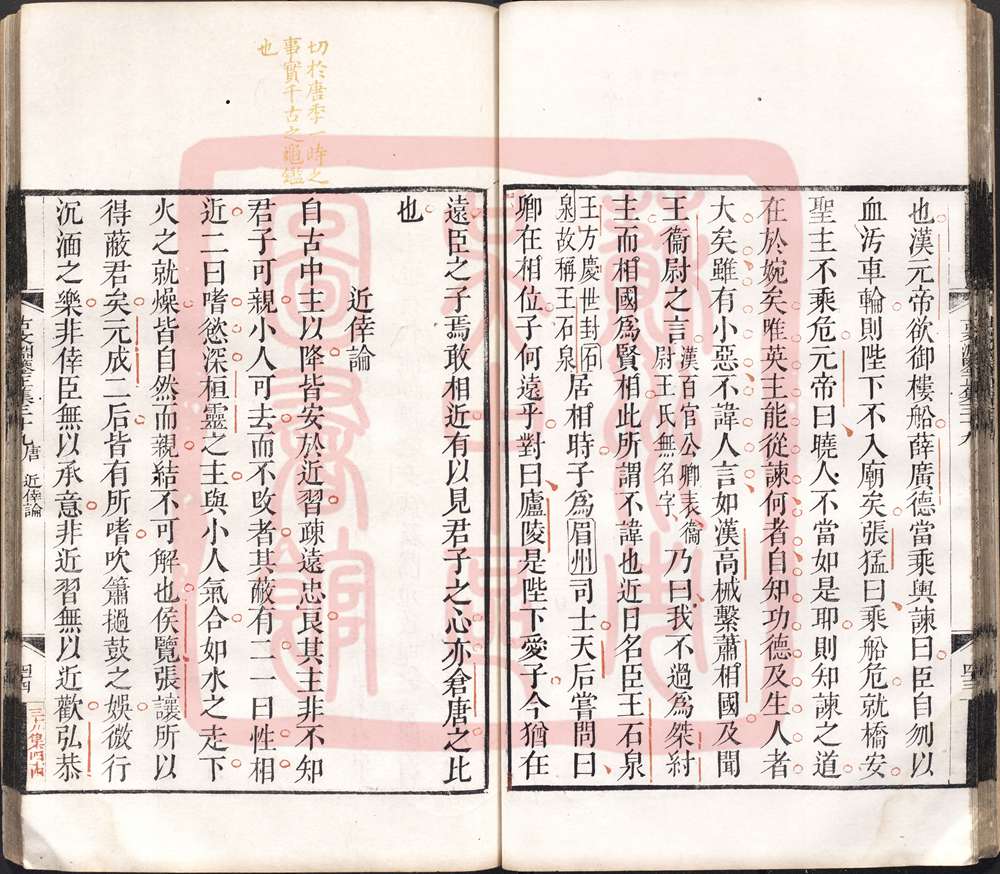 也漢元帝欲御樓船薛廣德當乘輿諫曰臣自刎以
血汚車輪則陛下不入廟矣張猛曰乘船危就橋安
聖主不乘危元帝曰曉人不當如是耶則知諫之道
在於婉矣唯英主能從諫何者自知功德及生人者
大矣雖有小惡不諱人言如漢高械繫蕭相國及聞
王衞尉之言漢百官公卿表衞尉王氏無名字乃曰我不過爲桀紂
主而相國爲賢相此所謂不諱也近日名臣王石泉
王方慶世封石泉故稱王石泉居相時子爲眉州司士天后嘗問曰
卿在相位子何遠乎對曰廬陵是陛下愛子今猶在
遠臣之子焉敢相近有以見君子之心亦倉唐之比
也
近倖論
自古中主以降皆安於近習疎遠忠良其主非不知
君子可親小人可去而不改者其蔽有二一曰性相
近二曰嗜慾深桓靈之主與小人氣合如水之走下
火之就燥皆自然而親結不可解也侯覽張讓所以
得蔽君矣元成二后皆有所嗜吹簫撾鼓之娛微行
沉湎之樂非倖臣無以承意非近習無以近歡弘恭
切於唐季一時之
事實千古之龜鑑
也
唐 近倖論
四十四
四十三
蘇州市
圖書館